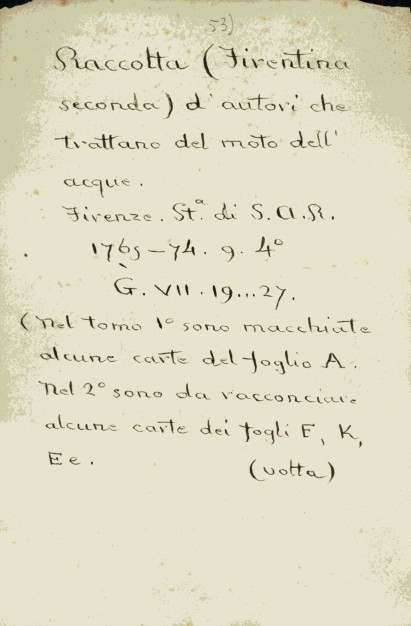 53)
Raccolta (Fiorentina
seconda) d'autori che
trattano del moto dell'
acque.
Firenze. St.a di S.A.R.
1765-74. 9. 4°
G. VII. 19...27.
(Nel tomo 1° sono macchiate
alcune carte del foglio A.
Nel 2° sono da racconciare
alcune carte dei fogli F, K,
Ee. (volta)